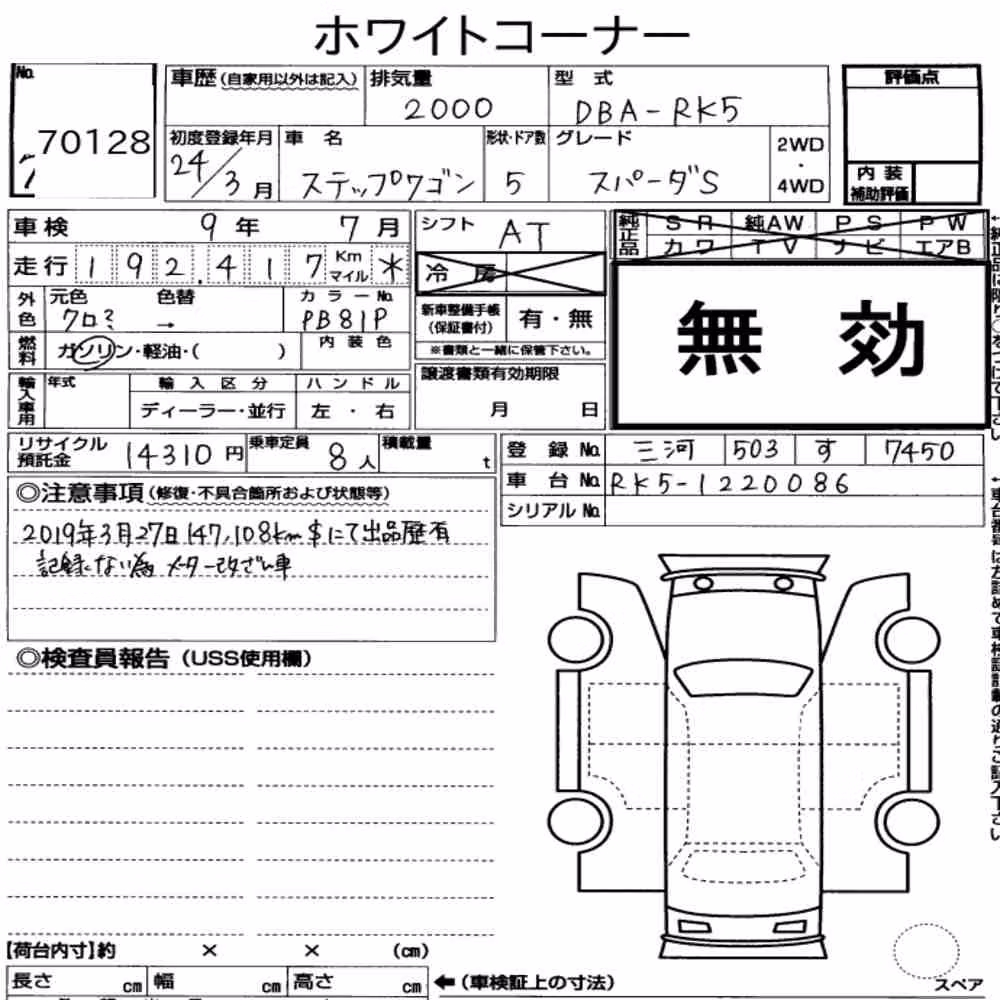 ホワイトコーナー
No. 70128
車歴 (自家用以外は記入)
排気量 2000
型式 DBA-RK5
評価点
初度登録年月 24/3月
車名 ステップワゴン
形状・ドア数 5
グレード スパーダS
2WD・4WD
内装補助評価
車検 9年 7月
シフト AT
純正品 SR 純AW PS PW
カワ TV ナビ エアB
走行 192,417 Km マイル *
冷房
無効
外色 元色 クロミ 色替 → カラーNo. PB81P
新車整備手帳(保証書付) 有・無
※書類と一緒に保管下さい。
燃料 ガソリン・軽油・( )
内装色
譲渡書類有効期限
月 日
輸入車用 年式 輸入区分 ハンドル
ディーラー・並行 左・右
リサイクル預託金 14310円
乗車定員 8人
積載量 t
登録No. 三河 503 す 7450
車台No. RK5-1220086
シリアルNo.
◎注意事項(修復・不具合箇所および状態等)
2019年3月27日 147,108km $にて出品歴有
記録にない為 メーター改ざん車
◎検査員報告(USS使用欄)
【荷台内寸】約 × × (cm)
長さ cm 幅 cm 高さ cm
←(車検証上の寸法)
スペア